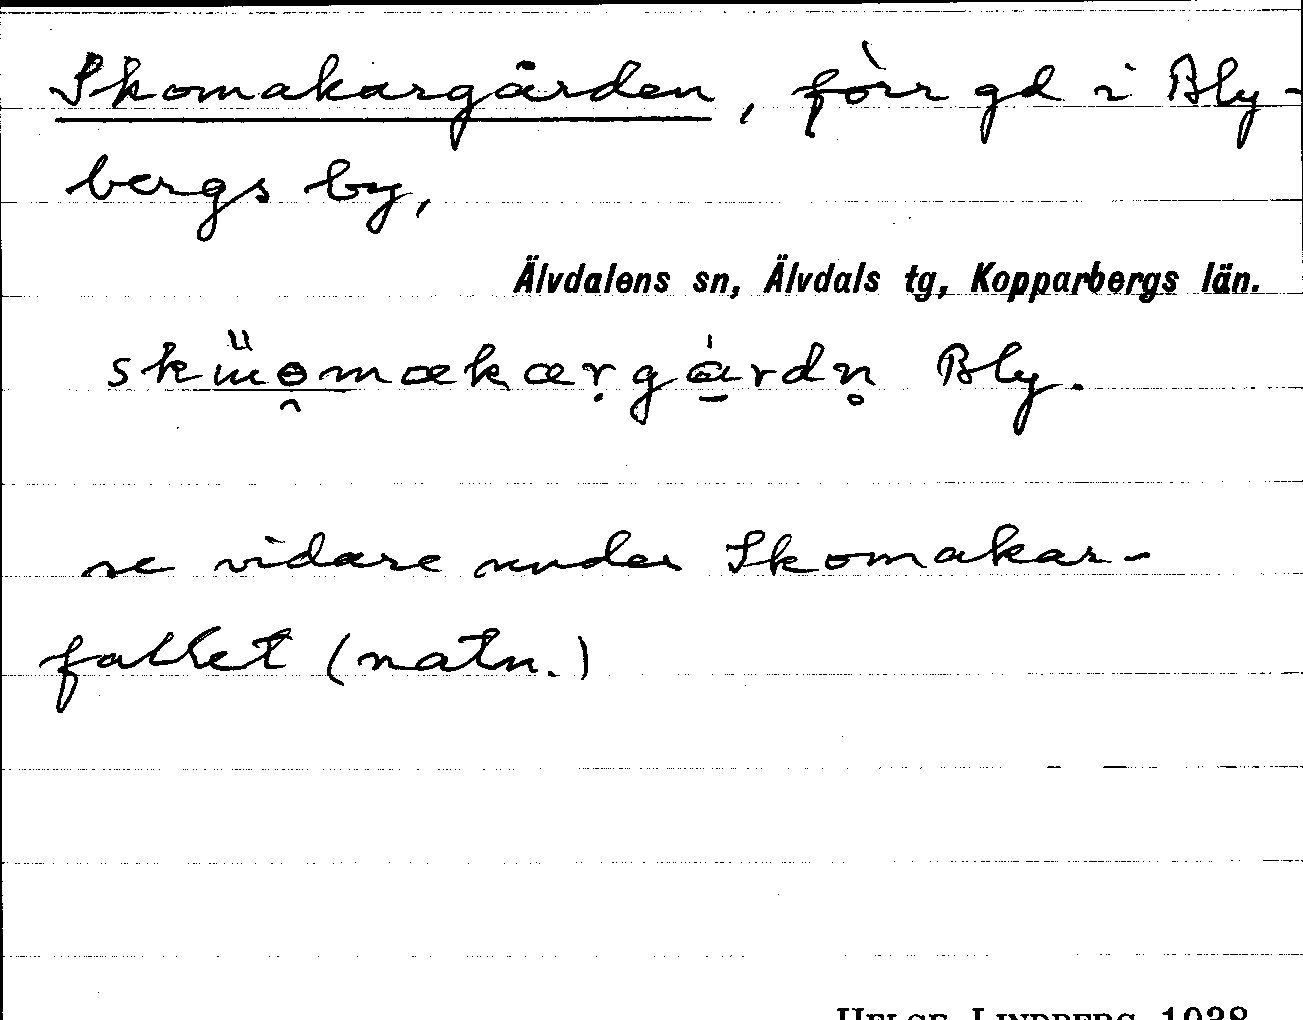 Skomakargården, förr gd i Bly-
bergs by,
Älvdalens sn, Älvdals tg, Kopparbergs län.
Bly.
se vidare under Skomakar-
fallet (natn.)
HELGE LINDBERG 1938